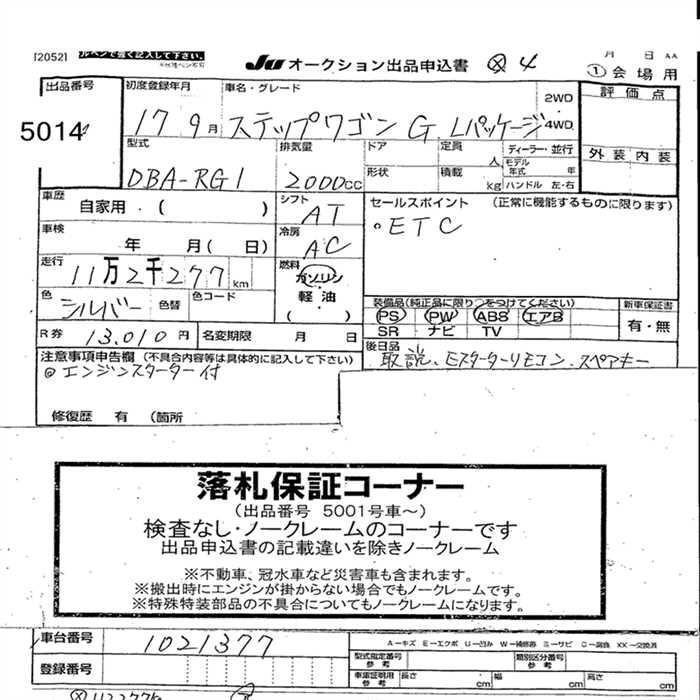 [2052] ルペンで強く記入して下さい。
JU オークション出品申込書 ⊗ 4
月 日 AA
① 会場用
出品番号 初度登録年月 車名・グレード 評価点
5014 17 9月 ステップワゴン G Lパッケージ 2WD 4WD
型式 排気量 ドア 定員 人 ディーラー・並行 外装 内装
モデル年式 年
DBA-RG1 2000cc 形状 積載 kg ハンドル 左・右
車歴 自家用・( ) シフト AT セールスポイント (正常に機能するものに限ります)
。ETC
車検 年 月( 日) 冷房 AC
走行 11万2千277km 燃料 ガソリン
軽油
( )
色 シルバー 色替 色コード
装備品(純正品に限り○をつけてください) 新車保証書
PS PW ABS エアB 有・無
SR ナビ TV
R券 13,010円 名変期限 月 日
後日品
取説、Eスターターリモコン、スペアキー
注意事項申告欄 (不具合内容等は具体的に記入して下さい)
◎エンジンスターター付
修復歴 有 (箇所
落札保証コーナー
(出品番号 5001号車～)
検査なし・ノークレームのコーナーです
出品申込書の記載違いを除きノークレーム
※不動車、冠水車など災害車も含まれます。
※搬出時にエンジンが掛からない場合でもノークレームです。
※特殊特装部品の不具合についてもノークレームになります。
車台番号 1021377
A－キズ E－エクボ U－凹み W－補修跡 S－サビ C－腐食 XX－交換済
型式指定番号 参考 類別区分番号 参考
登録番号 車庫証明用 参考 長さ cm 幅 cm 高さ cm